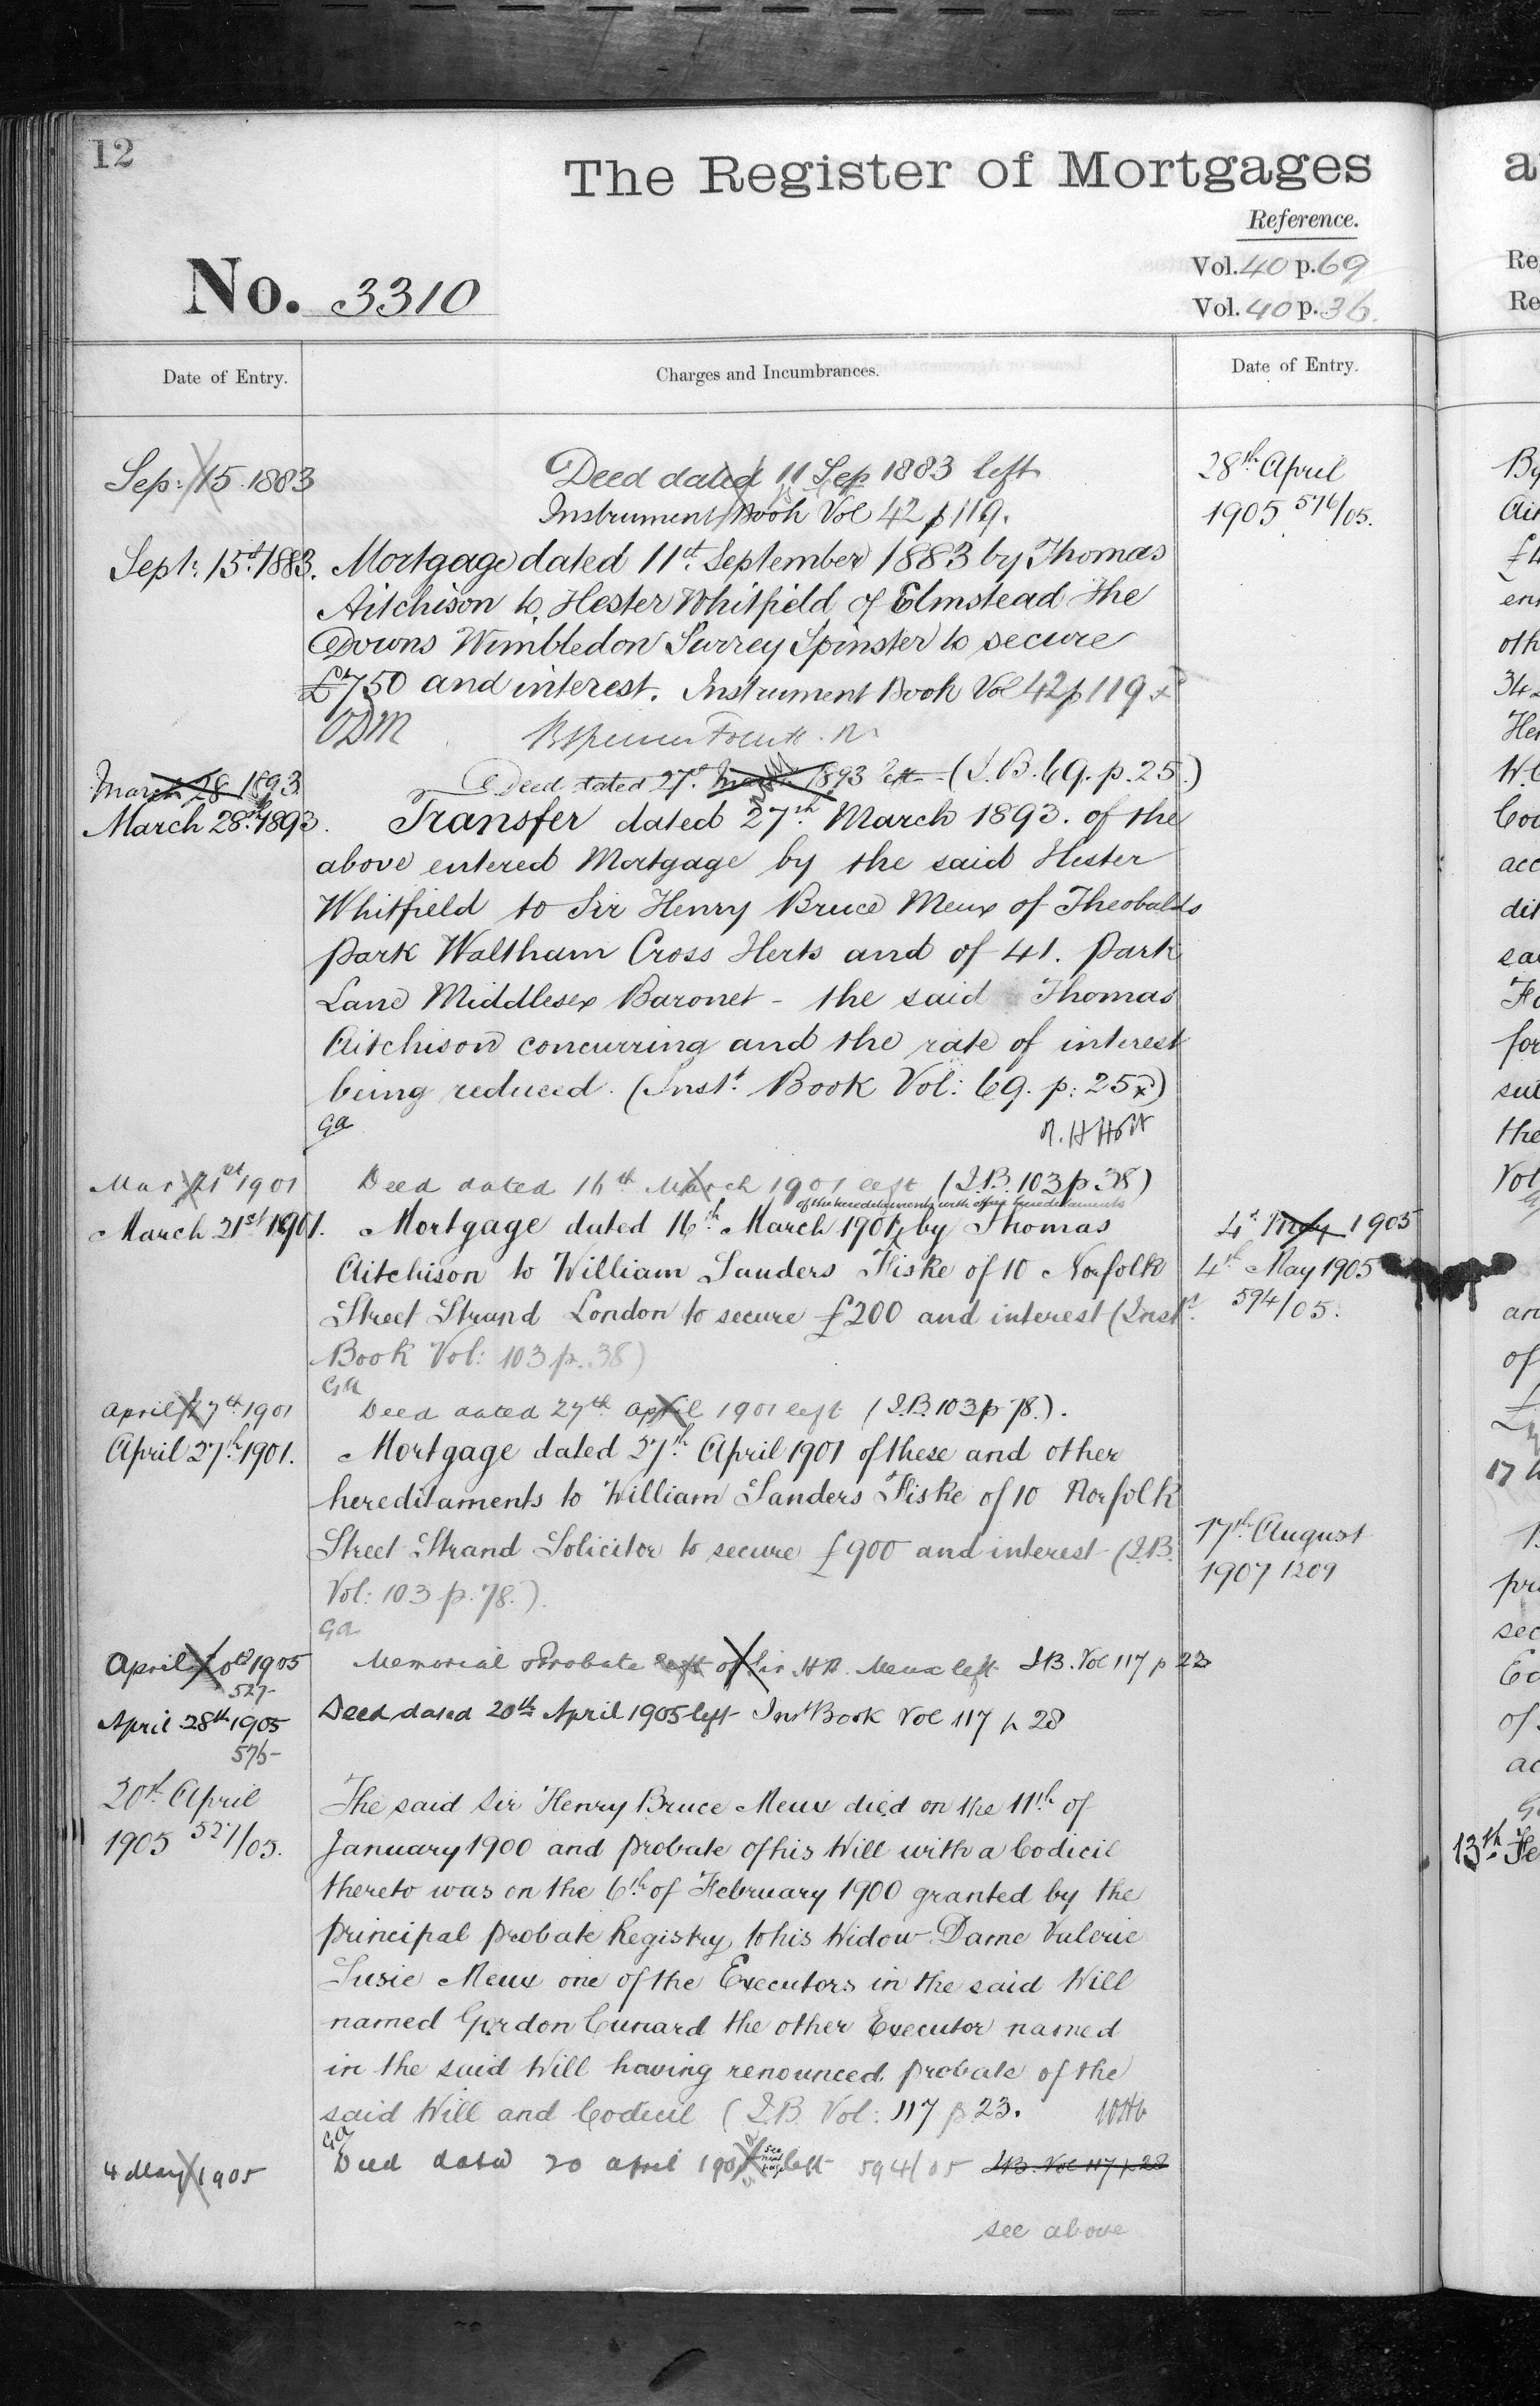 12
The Register of Mortgages
Reference.
Vol. 40 p. 69
No. 3310
Vol. 40 p. 36.
Date of Entry.
Charges and Incumbrances.
Date of Entry.
Sep: 15. 1883
Deed dated 11 Sep 1883 left
Instrument Book Vol 42 p 119.
Sept: 15th 1883.
Mortgage dated 11th September 1883 by Thomas
Aitchison to Hester Whitfield of Elmstead The
Downs Wimbledon Surrey Spinster to secure
£750 and interest. Instrument Book Vol 42 p 119
March 28 1893
Deed dated 27th March 1893 left (I.B. 69. p. 25.)
March 28th 1893.
Transfer dated 27th March 1893. of the
above entered Mortgage by the said Hester
Whitfield to Sir Henry Bruce Meux of Theobalds
Park Waltham Cross Herts and of 41. Park
Lane Middlesex Baronet - the said Thomas
Aitchison concurring and the rate of interest
being reduced. (Inst. Book Vol: 69. p: 25)
Ga
Mar 21st 1901
Deed dated 16th March 1901 left (I.B. 103 p 38)
of the hereditaments with other hereditaments
March 21st 1901.
Mortgage dated 16th March 1901, by Thomas
Aitchison to William Sanders Fiske of 10 Norfolk
Street Strand London to secure £200 and interest (Inst.
Book Vol: 103 p. 38)
Ga
April 27th 1901
Deed dated 27th April 1901 left (I.B. 103 p 78.).
April 27th 1901.
Mortgage dated 27th April 1901 of these and other
hereditaments to William Sanders Fiske of 10 Norfolk
Street Strand Solicitor to secure £900 and interest (I.B.
Vol: 103 p. 78.).
Ga
April 20th 1905
527
Memorial Probate left of Sir H B. Meux left I.B. Vol 117 p 23
April 28th 1905
576
Deed dated 20th April 1905 left Inst Book Vol 117 p 28
20th April
1905 527/05.
The said Sir Henry Bruce Meux died on the 11th of
January 1900 and probate of his Will with a Codicil
thereto was on the 6th of February 1900 granted by the
Principal Probate Registry to his Widow Dame Valerie
Susie Meux one of the Executors in the said Will
named Gordon Cunard the other Executor named
in the said Will having renounced probate of the
said Will and Codicil (I.B. Vol: 117 p. 23.
Ga
4 May 1905
Deed dated 20 April 1905 see next page left 594/05 I.B. Vol 117 p 28
see above
28th April
1905 576/05.
4th May 1905
4th May 1905
594/05.
17th August
1907 1209